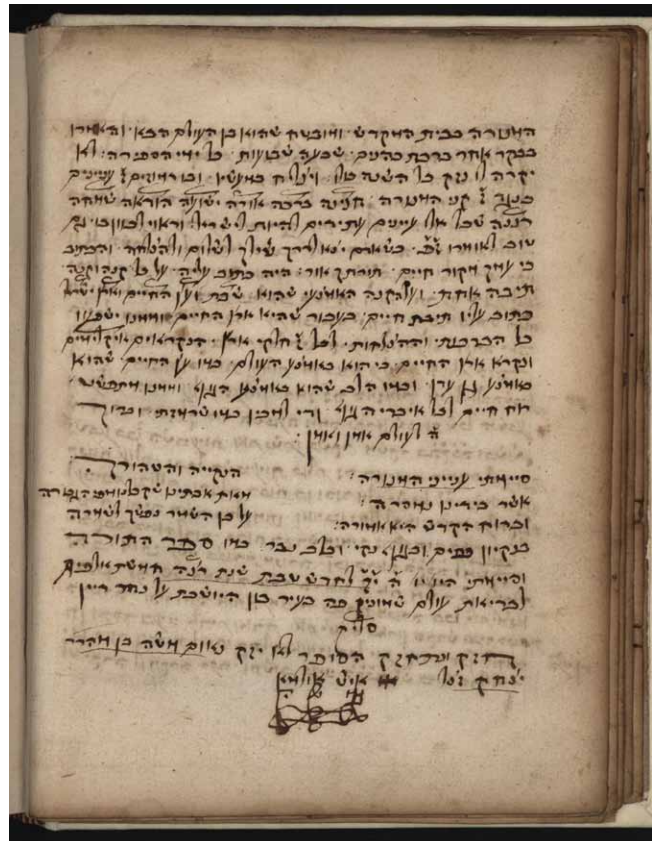 המנורה בבית המקדש ומובטח שהוא בן העולם הבא והאומרו
בבקר אחר ברכת כהנים שבעה שבועות כל ימי הספירה לא
יקרה לו נזק כל השנה כולו ויצליח במעשיו ובו רמוזים ז' ענינים
כנגד ז' קני המנורה חנינה ברכה אורה ישועה הוראה שמחה
רננה שכל אלו עניינים עתידים להיות לישראל וראוי לכוין בו גם
טוב לאומרו כשאדם יוצא לדרך שילך לשלום ולהצלחה והכתוב
כי עמך מקור חיים באורך נראה אור היה כתוב עליה על כל קנה וקנה
תיבה אחת ועל הקנה האמצעי שהוא
כתוב עליו תיבת חיים בעבור שהיא ארץ החיים וממנו ישפעו
כל הברכות וההצלחות לכל ז' חלקי ארץ הנקראים אקלימים
ונקרא ארץ החיים כי הוא באמצע העולם כמו עץ החיים שהוא
באמצע גן עדן וכמו הלב שהוא באמצע הגוף וממנו מתפשט
רוח חיים לכל איברי הגוף ודי למבין כמו שרמזתי וברוך
יי' לעולם אמן ואמן
סיימתי ענייני המנורה הנקייה והטהורה
אשר בידינו נמסרה מאת אבתינו
וברוח הקדש היא אמורה על כן השמר נפשך לשמרה
בנקיון כפים ובגוף נקי ובלב נבר כמו ספר התורה
וסיימתי היו' יו' ה' לחדש שבת שנת חמשת אלפים
לבריאת עולם פה בעיר בון היושבת על נהר ריין
סליק
חזק ונתחזק הסופר לא יזק נאום משה בן מהרר
יצחק ז"ל איש